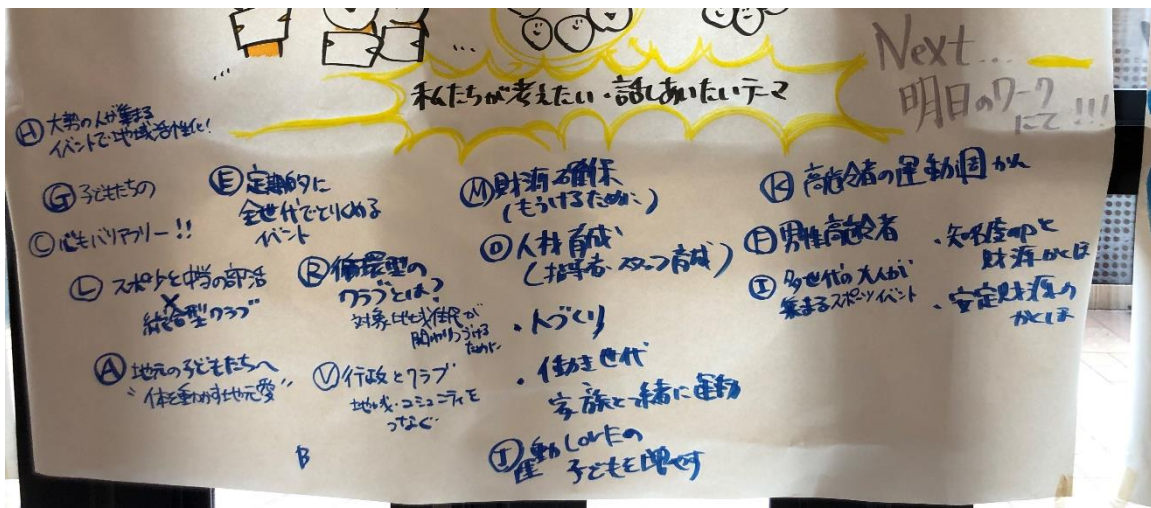 私たちが考えたい・話しあいたいテーマ
Next...
明日のワーク
にて!!!
Ⓗ 大勢の人が集まる
イベントで地域活性化!
Ⓖ 子どもたちの
Ⓒ 心もバリアフリー!!
Ⓛ スポ少と中学の部活
×
総合型クラブ
Ⓐ 地元の子どもたちへ
"体を動かす地元愛"
Ⓔ 定期的に
全世代でとりくめる
イベント
Ⓡ 循環型の
クラブとは?
対象地域住民が
関わりつづける
ために
Ⓥ 行政とクラブ
地域・コミュニティを
つなぐ
B
Ⓜ 財源確保
(もうけるために)
Ⓞ 人材育成
(指導者・スタッフ育成)
・人づくり
・働き世代
家族と一緒に運動
Ⓙ 運動Loveの
子どもを増やす
Ⓚ 高齢者の運動習かん
Ⓕ 男性高齢者
Ⓘ 多世代の大人が
集まるスポーツイベント
・知名度upと
財源かくほ
・安定財源の
かくほ